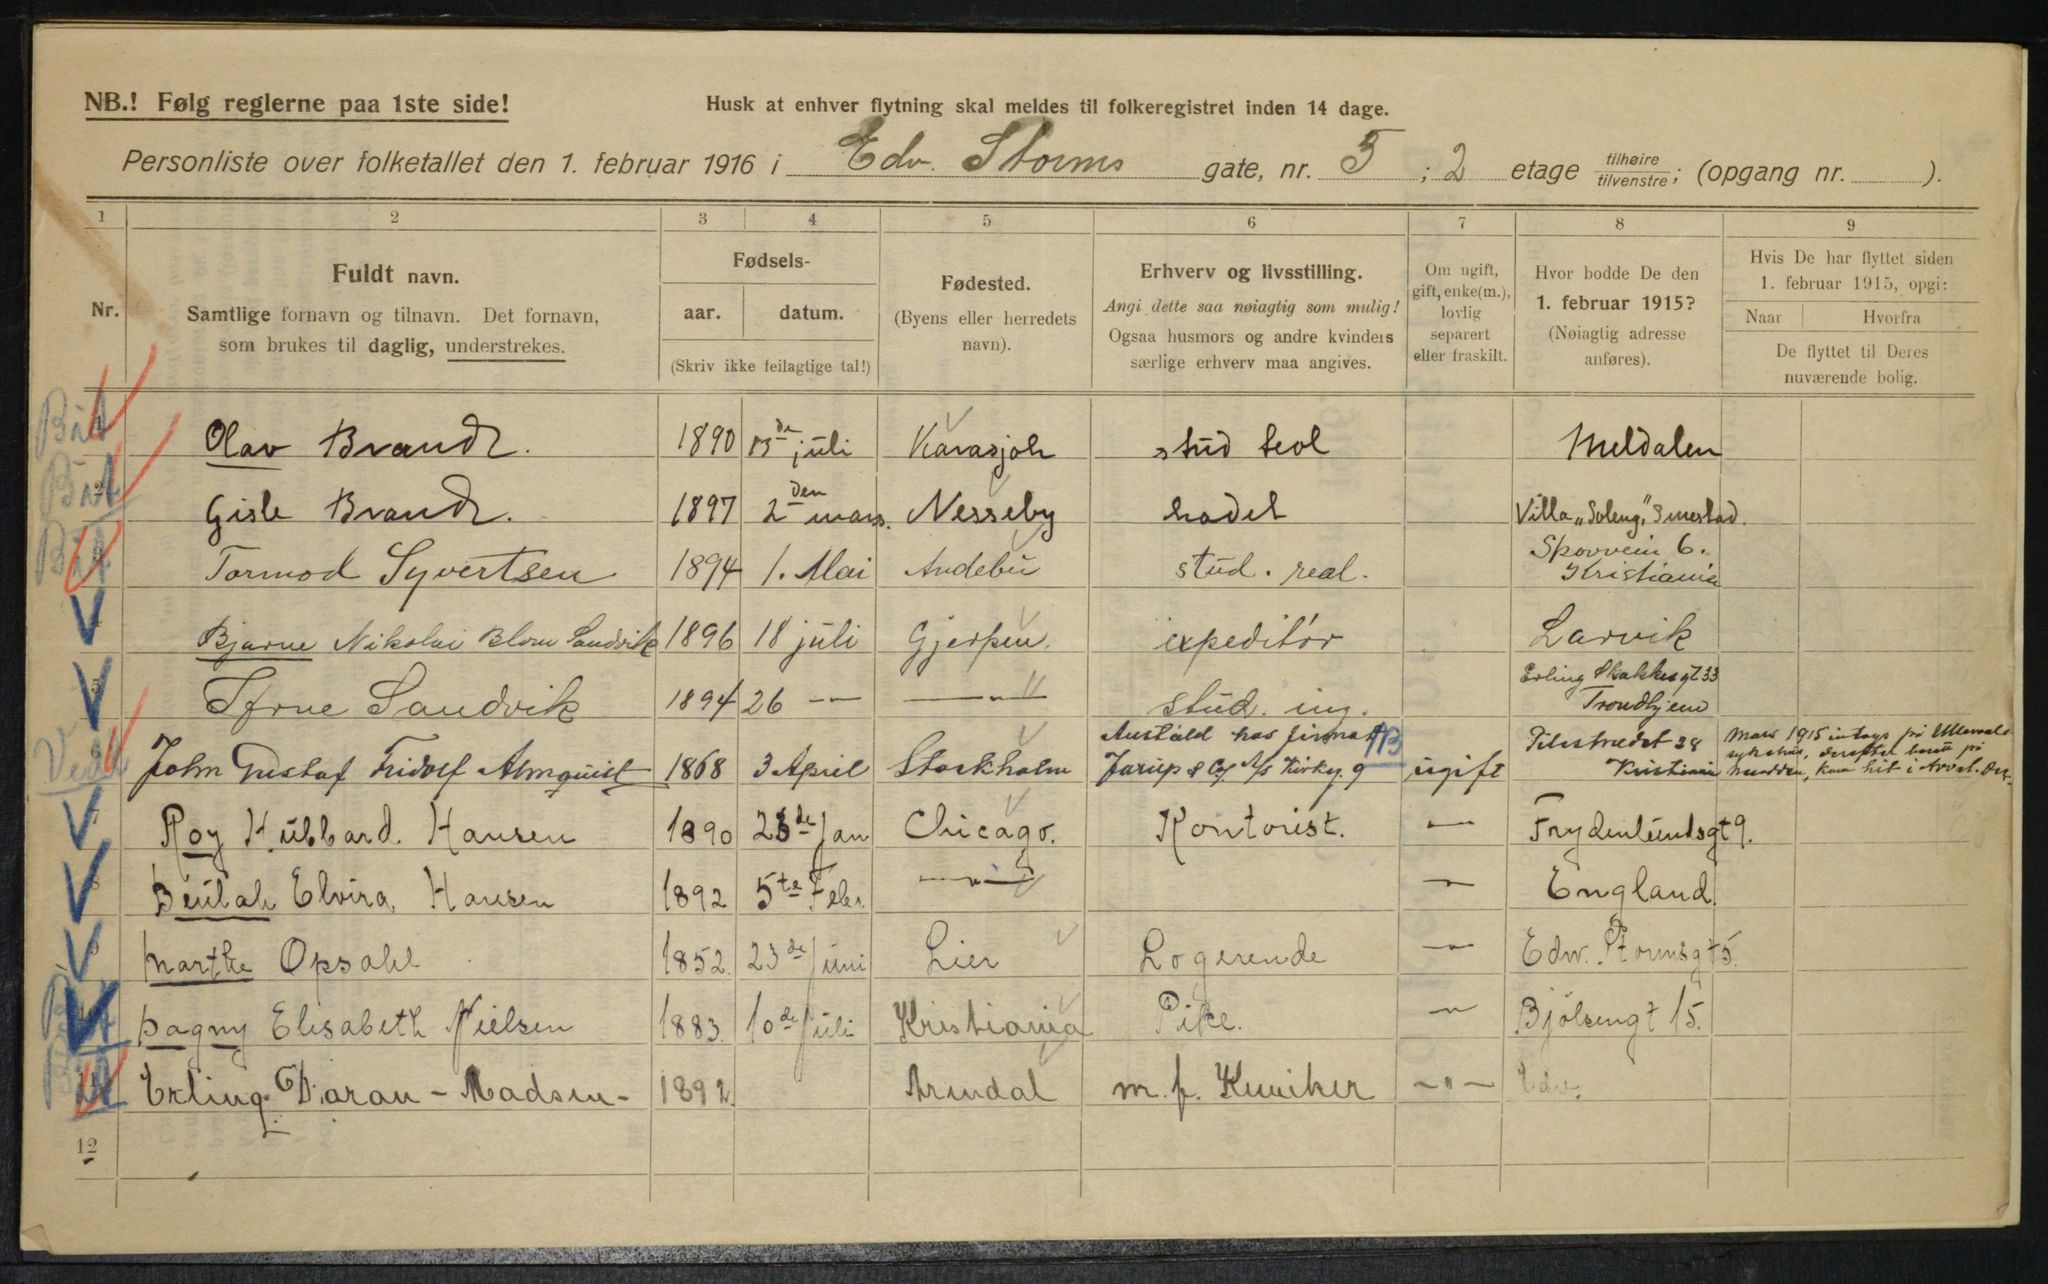 NB.! Følg reglerne paa 1ste side!
Husk at enhver flytning skal meldes til folkeregistret inden 14 dage.
Personliste over folketallet den 1. februar 1916 i Edv. Storms gate, nr. 5 ; 2 etage tilhøire/tilvenstre; (opgang nr. ).
1 2 3 4 5 6 7 8 9
Nr.
Fuldt navn.
Samtlige fornavn og tilnavn. Det fornavn,
som brukes til daglig, understrekes.
Fødsels-
aar. datum.
(Skriv ikke feilagtige tal!)
Fødested.
(Byens eller herredets
navn).
Erhverv og livsstilling.
Angi dette saa nøiagtig som mulig!
Ogsaa husmors og andre kvinders
særlige erhverv maa angives.
Om ugift,
gift, enke(m.),
lovlig
separert
eller fraskilt.
Hvor bodde De den
1. februar 1915?
(Nøiagtig adresse
anføres).
Hvis De har flyttet siden
1. februar 1915, opgi:
Naar Hvorfra
De flyttet til Deres
nuværende bolig.
Olav Brandt. 1890 13de juli Karasjok stud teol Meldalen
Gisle Brandt. 1897 2den mars. Nesseby kadet Villa „Soleng", Smestad.
Tormod Syvertsen 1894 1. Mai Andebu stud. real. Skovvein 6. Kristiania
Bjarne Nikolai Blom Sandvik 1896 18 juli Gjerpen. expeditør Larvik
Sandvik 1894 26 — —"— stud. ing. Erling Skakkesgt 33 Trondhjem
John Gustaf Fridolf Almquist 1868 3 April Stockholm Anstæld hos firma Jarup & Co A/S Kirkg. 9 ugift Pilestrædet 28 Kristiania Mars 1915 på Ullevaal
Roy Hubbard. Hansen 1890 23de Jan Chicago. Kontorist. —"— Frydenlundsgt 9.
Beulah Elvira Hansen 1892 5te Febr. —"— —"— England.
Marthe Opsahl 1852. 23de Juni Lier Logerende —"— Edv. Stormsgt 5.
Dagny Elisabeth Nielsen 1883. 10de Juli Kristiania Pike. —"— Bjölsengt 15.
11 Erling Daran - Madsen - 1892. Arendal m. f. Kemiker —"— Edv.
12